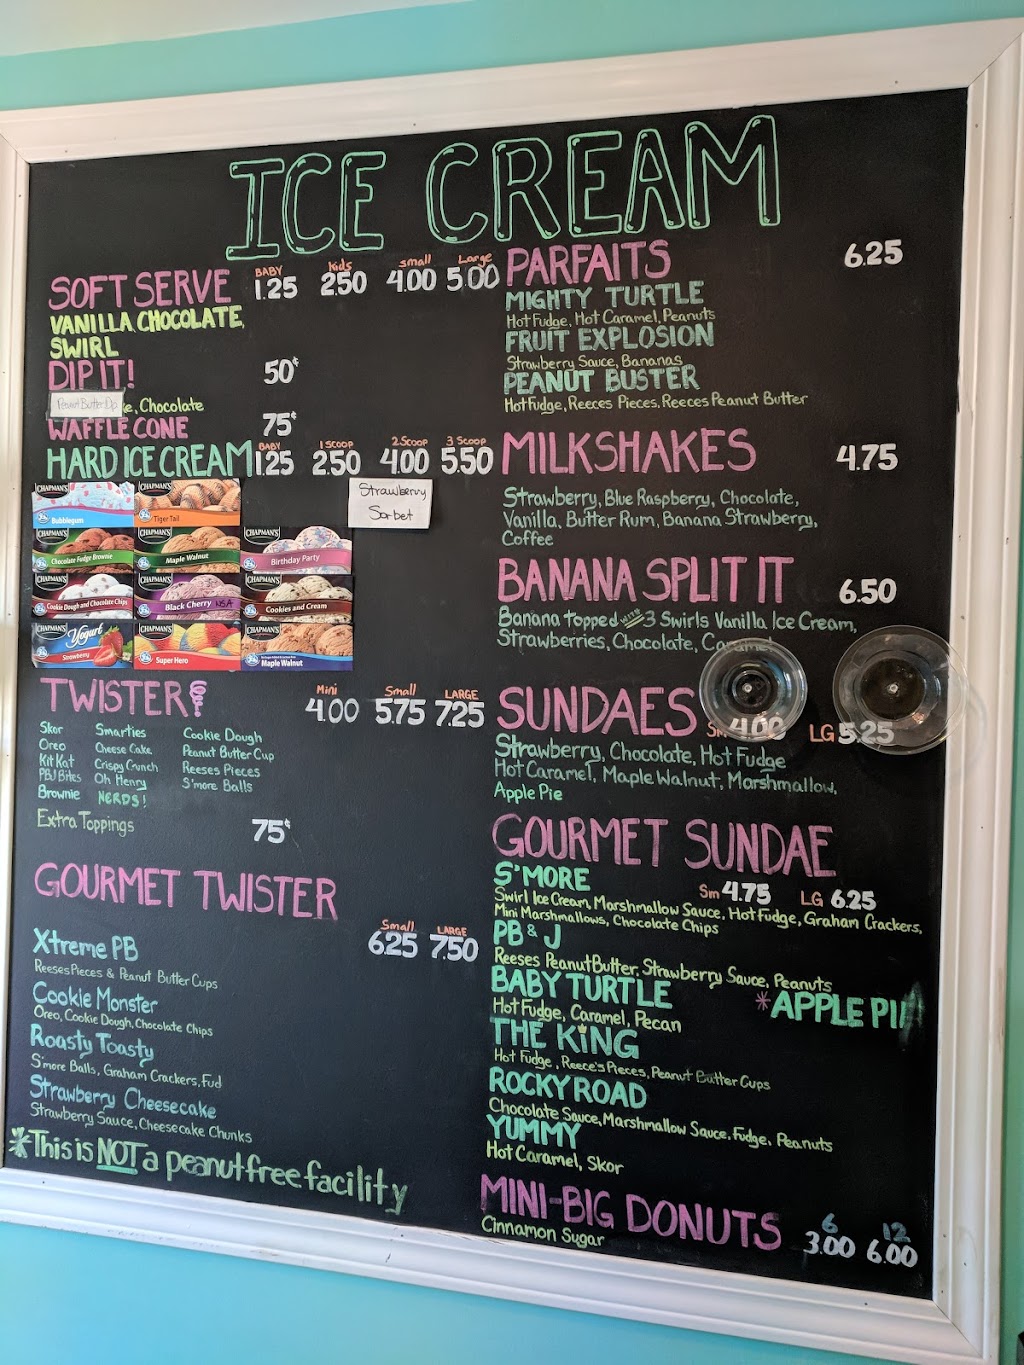 ICE CREAM
SOFT SERVE
BABY kids small Large
1.25 2.50 4.00 5.00
VANILLA, CHOCOLATE,
SWIRL
DIP IT! 50¢
Peanut Butter Dip
e, Chocolate
WAFFLE CONE 75¢
HARD ICE CREAM
BABY 1 SCOOP 2 SCOOP 3 SCOOP
1.25 2.50 4.00 5.50
Strawberry
Sorbet
CHAPMAN'S Bubblegum
CHAPMAN'S Tiger Tail
CHAPMAN'S Chocolate Fudge Brownie
CHAPMAN'S Maple Walnut
CHAPMAN'S Birthday Party
CHAPMAN'S Cookie Dough and Chocolate Chips
CHAPMAN'S Black Cherry NSA
CHAPMAN'S Cookies and Cream
CHAPMAN'S Yogurt Strawberry
CHAPMAN'S Super Hero
CHAPMAN'S Maple Walnut
TWISTER!
Mini Small LARGE
4.00 5.75 7.25
Skor Smarties Cookie Dough
Oreo Cheese Cake Peanut Butter Cup
Kit Kat Crispy Crunch Reeses Pieces
PBJ Bites Oh Henry S'more Balls
Brownie NERDS!
Extra Toppings 75¢
GOURMET TWISTER
Small LARGE
6.25 7.50
Xtreme PB
Reeses Pieces & Peanut Butter Cups
Cookie Monster
Oreo, Cookie Dough, Chocolate Chips
Roasty Toasty
S'more Balls, Graham Crackers, Fud
Strawberry Cheesecake
Strawberry Sauce, Cheesecake Chunks
*This is NOT a peanut free facility
PARFAITS 6.25
MIGHTY TURTLE
Hot Fudge, Hot Caramel, Peanuts
FRUIT EXPLOSION
Strawberry Sauce, Bananas
PEANUT BUSTER
Hot Fudge, Reeces Pieces, Reeces Peanut Butter
MILKSHAKES 4.75
Strawberry, Blue Raspberry, Chocolate,
Vanilla, Butter Rum, Banana Strawberry,
Coffee
BANANA SPLIT IT 6.50
Banana topped with 3 Swirls Vanilla Ice Cream,
Strawberries, Chocolate, Caramel
SUNDAES SM 4.00 LG 5.25
Strawberry, Chocolate, Hot Fudge
Hot Caramel, Maple Walnut, Marshmallow,
Apple Pie
GOURMET SUNDAE
S'MORE Sm 4.75 LG 6.25
Swirl Ice Cream, Marshmallow Sauce, Hot Fudge, Graham Crackers,
Mini Marshmallows, Chocolate Chips
PB & J
Reeses Peanut Butter, Strawberry Sauce, Peanuts
BABY TURTLE *APPLE PIE
Hot Fudge, Caramel, Pecan
THE KING
Hot Fudge, Reece's Pieces, Peanut Butter Cups
ROCKY ROAD
Chocolate Sauce, Marshmallow Sauce, Fudge, Peanuts
YUMMY
Hot Caramel, Skor
MINI-BIG DONUTS
Cinnamon Sugar
6 12
3.00 6.00